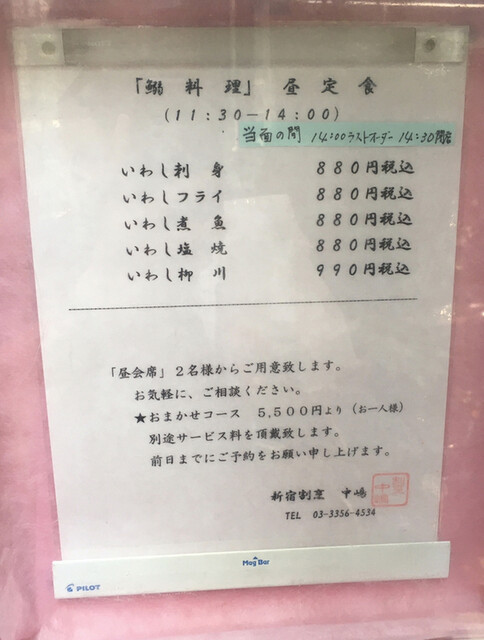 「鰯 料 理」 昼 定 食
(11:30-14:00)
当面の間 14:00ラストオーダー 14:30閉店
いわし刺 身 880円税込
いわしフライ 880円税込
いわし煮 魚 880円税込
いわし塩 焼 880円税込
いわし柳 川 990円税込
「昼会席」2名様からご用意致します。
お気軽に、ご相談ください。
★おまかせコース 5,500円より(お一人様)
別途サービス料を頂戴致します。
前日までにご予約をお願い申し上げます。
新宿割烹 中嶋
TEL 03-3356-4534
Mag Bar
PILOT